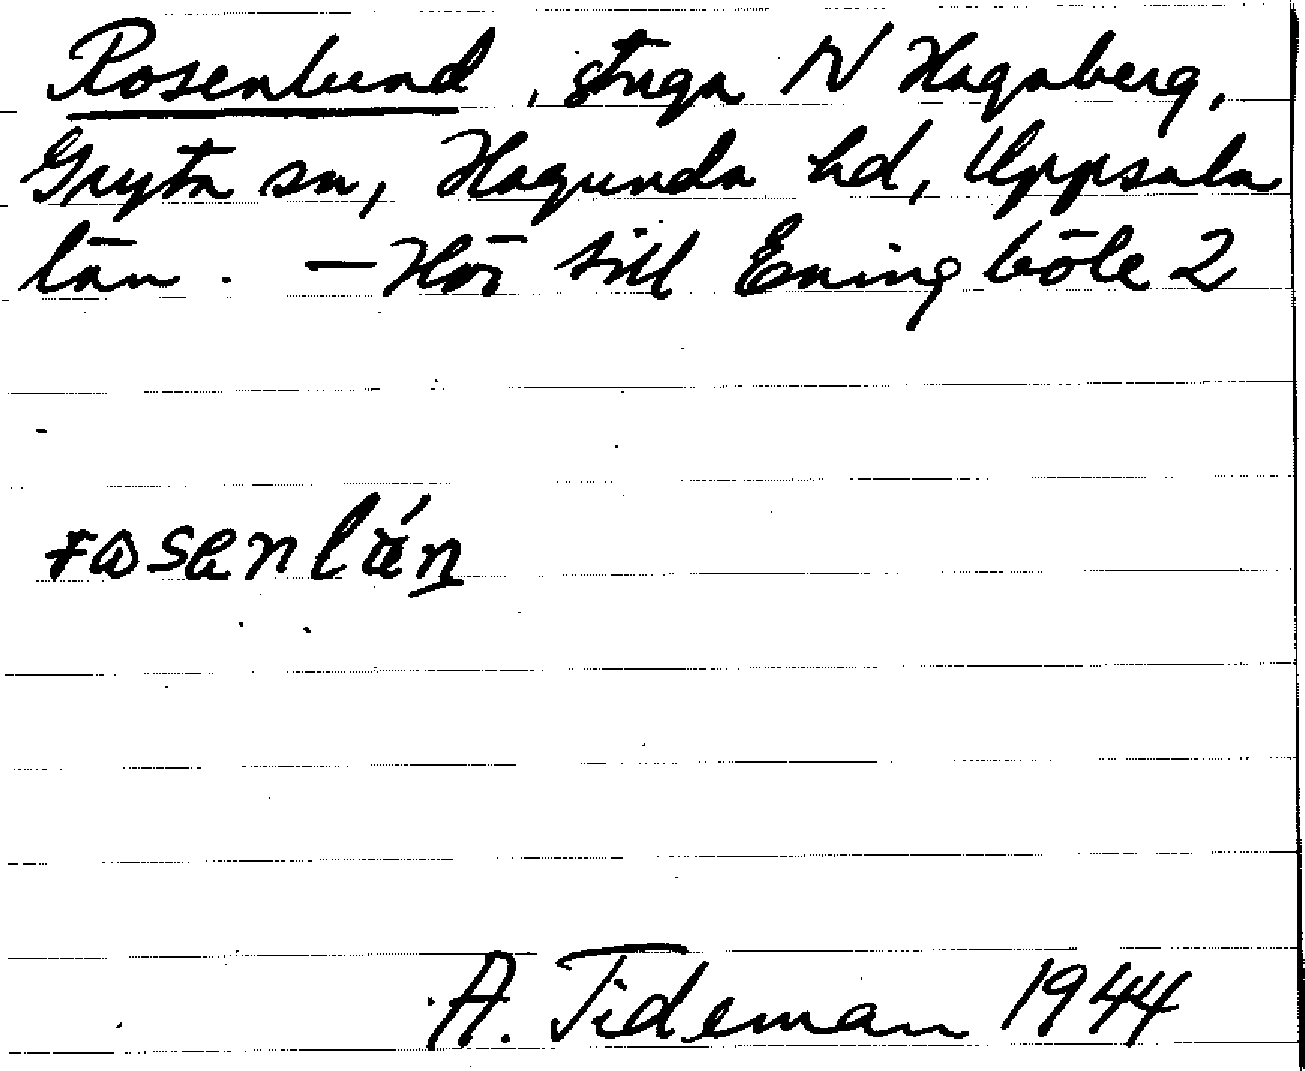 Rosenlund, stuga N Hagaberg,
Gryta sn, Hagunda hd, Uppsala
län. – Hör till Eningböle 2
rosenlún
A. Tideman 1944